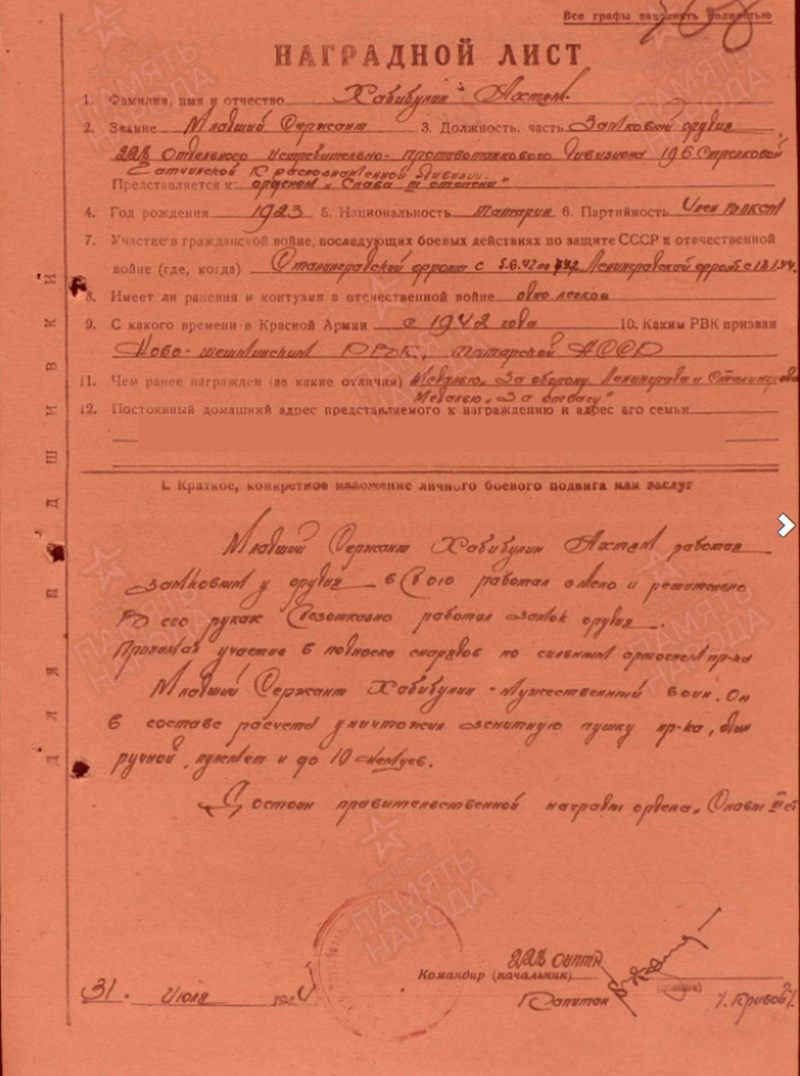 Все графы заполнять полностью
НАГРАДНОЙ ЛИСТ
1. Фамилия, имя и отчество Хабибулин
2. Звание Младший Сержант 3. Должность, часть Замковый орудия
228 Отдельного Истребительно-противотанкового Дивизиона 196 Стрелковой
Гатчинской Краснознаменной дивизии.
Представляется к орденом „Слава III степени"
4. Год рождения 1923 5. Национальность татарин 6. Партийность Член ВЛКСМ
7. Участие в гражданской войне, последующих боевых действиях по защите СССР и отечественной
войне (где, когда) Сталинградский фронт с 5.6.42 по Ленинградской фронт с
8. Имеет ли ранения и контузии в отечественной войне одно легкое
9. С какого времени в Красной Армии с 1942 года 10. Каким РВК призван
Ново-шешминским РВК, Татарской АССР
11. Чем ранее награжден (за какие отличия) Медалью „За оборону Ленинграда и Сталинграда
Медалью „За отвагу"
12. Постоянный домашний адрес представляемого к награждению и адрес его семьи
I. Краткое, конкретное изложение личного боевого подвига или заслуг
Младший Сержант Хабибулин работая
замковым у орудия в бою работал смело и решительно
В его руках безотказно работал замок орудия.
Принимал участие в подноске снарядов по сильным артогнем пр-ка
Младший Сержант Хабибулин - мужественный воин. Он
в составе расчета уничтожил зенитную пушку пр-ка, один
ручной пулемет и до 10 немцев.
Достоин правительственной награды ордена „Славы III ст
228 оиптд
Командир (начальник)
Капитан /Кривой/
31. Июля 1944
ДЛЯ ПОДШИВКИ
ПАМЯТЬ
НАРОДА